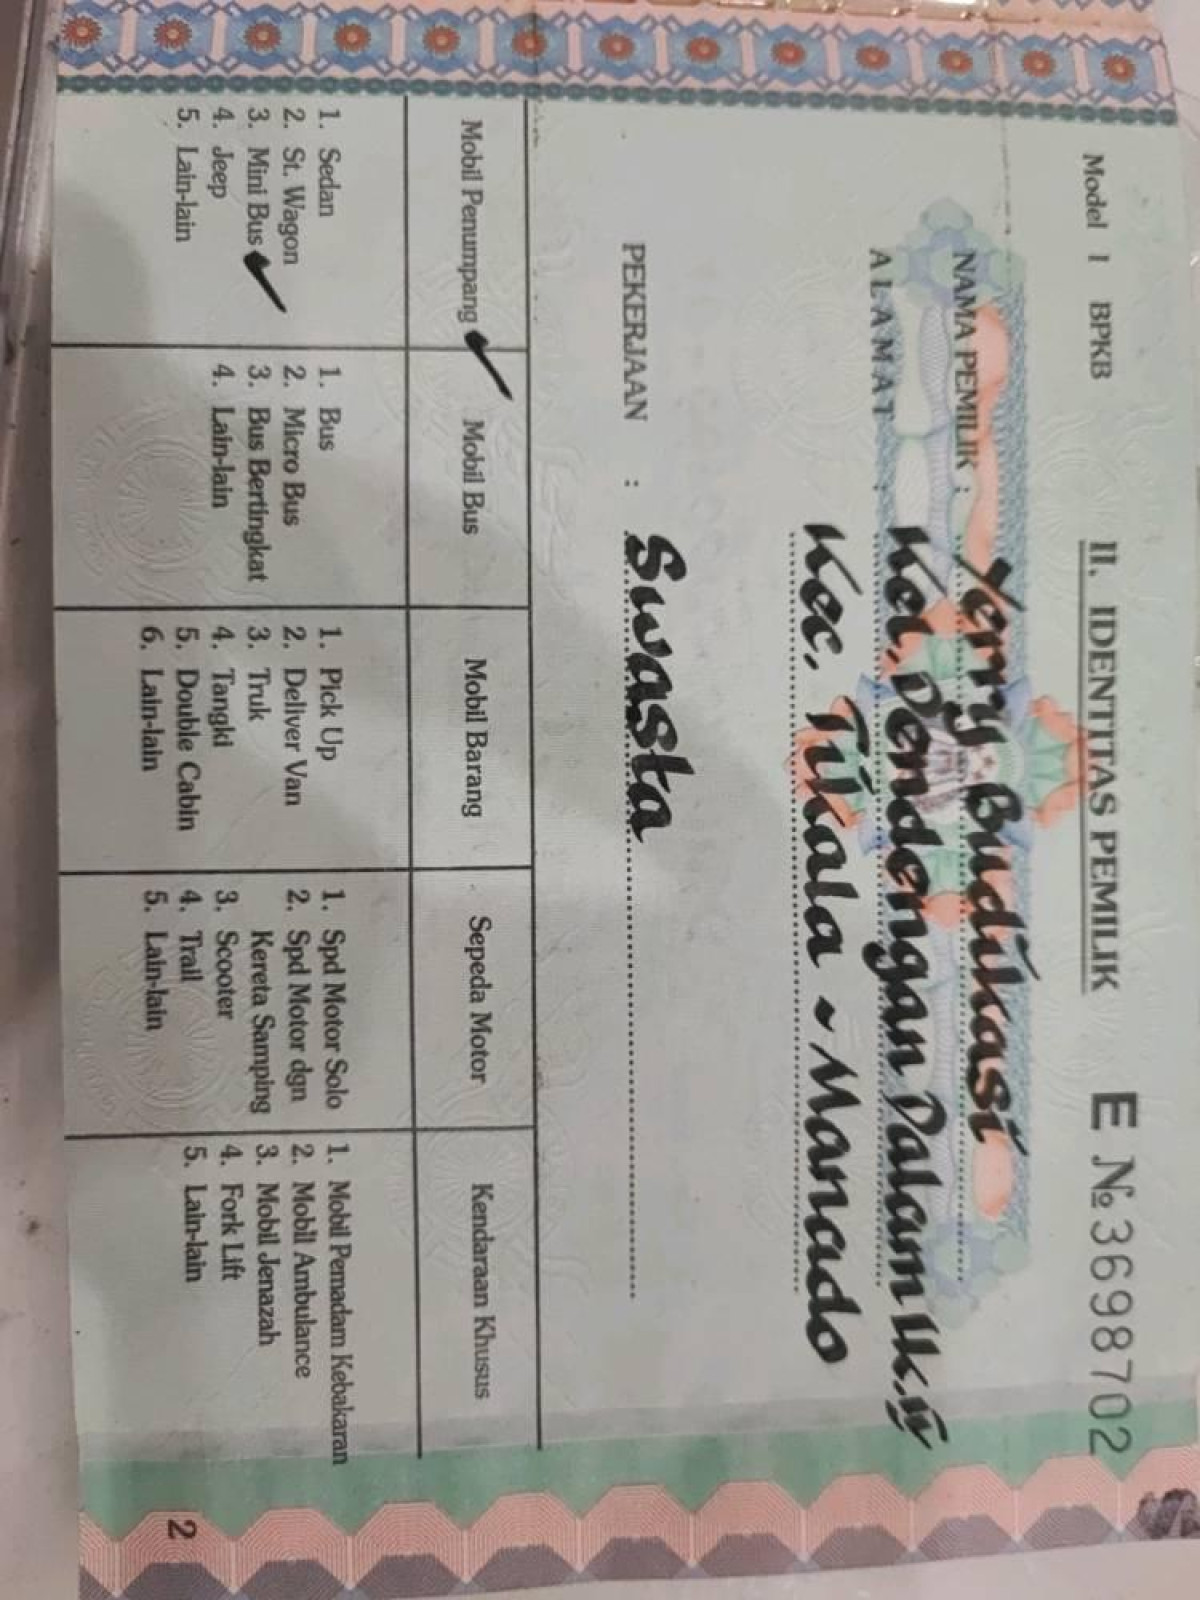 Model 1 BPKB
II. IDENTITAS PEMILIK
E № 3698702
NAMA PEMILIK : Yerry Budikasi
ALAMAT : Kel. Dendengan Dalam Lk. IV
Kec. Tikala ~ Manado
PEKERJAAN : Swasta
Mobil Penumpang ✓
1. Sedan
2. St. Wagon
3. Mini Bus ✓
4. Jeep
5. Lain-lain
Mobil Bus
1. Bus
2. Micro Bus
3. Bus Bertingkat
4. Lain-lain
Mobil Barang
1. Pick Up
2. Deliver Van
3. Truk
4. Tangki
5. Double Cabin
6. Lain-lain
Sepeda Motor
1. Spd Motor Solo
2. Spd Motor dgn
Kereta Samping
3. Scooter
4. Trail
5. Lain-lain
Kendaraan Khusus
1. Mobil Pemadam Kebakaran
2. Mobil Ambulance
3. Mobil Jenazah
4. Fork Lift
5. Lain-lain
2